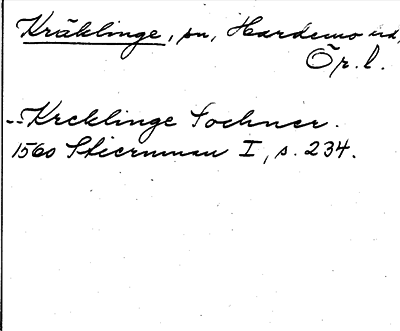 Kräklinge, sn, Hardemo hd,
Ör. l.
--Krcklinge Sochner.
1560 Stiernman I, s. 234.